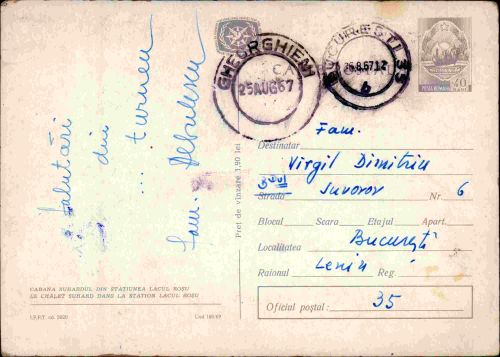 Salutări
din
... turneu
Fam. Debulescu
CABANA SUHARDUL DIN STAȚIUNEA LACUL ROȘU
LE CHALET SUHARD DANS LA STATION LACUL ROȘU
I.P.P.T. cd. 5020 Cod 169/69
Preț de vînzare 1,90 lei
GHEORGHIENI
25AUG67
BUCUREȘTI 35
26.8.67.12
POSTA ROMANA 40
Fam.
Destinatar Virgil Dimitriu
Bdul
Strada Suvorov Nr. 6
Blocul Scara Etajul Apart.
Localitatea București
Raionul Lenin Reg.
Oficiul poștal: 35